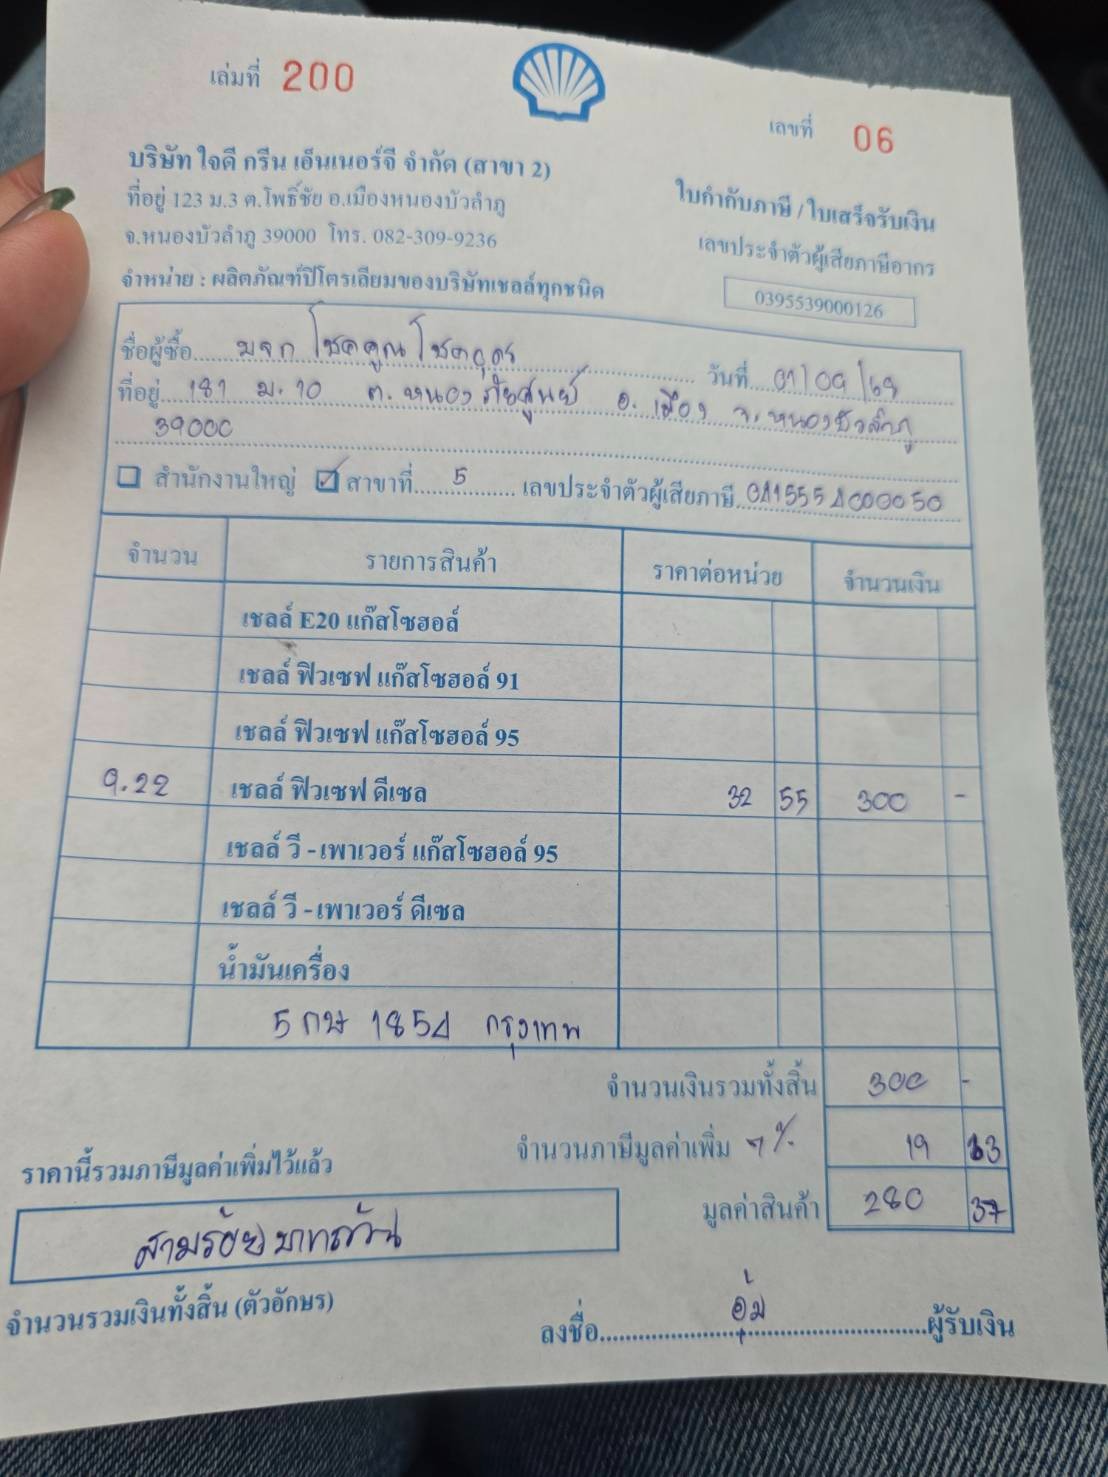 เล่มที่ 200
เลขที่ 06
บริษัท ใจดี กรีน เอ็นเนอร์จี จำกัด (สาขา 2)
ที่อยู่ 123 ม.3 ต.โพธิ์ชัย อ.เมืองหนองบัวลำภู
จ.หนองบัวลำภู 39000 โทร. 082-309-9236
จำหน่าย : ผลิตภัณฑ์ปิโตรเลียมของบริษัทเชลล์ทุกชนิด
ใบกำกับภาษี / ใบเสร็จรับเงิน
เลขประจำตัวผู้เสียภาษีอากร
0395539000126
ชื่อผู้ซื้อ มจก โชคคูณโชคอุดร วันที่ 01/09/68
ที่อยู่ 181 ม.10 ต.หนองภัยศูนย์ อ.เมือง จ.หนองบัวลำภู
39000
สำนักงานใหญ่ สาขาที่ 5 เลขประจำตัวผู้เสียภาษี 0415554000050
จำนวน รายการสินค้า ราคาต่อหน่วย จำนวนเงิน
เชลล์ E20 แก๊สโซฮอล์
เชลล์ ฟิวเซฟ แก๊สโซฮอล์ 91
เชลล์ ฟิวเซฟ แก๊สโซฮอล์ 95
9.22 เชลล์ ฟิวเซฟ ดีเซล 32 55 300 -
เชลล์ วี - เพาเวอร์ แก๊สโซฮอล์ 95
เชลล์ วี - เพาเวอร์ ดีเซล
น้ำมันเครื่อง
5 กษ 1854 กรุงเทพ
จำนวนเงินรวมทั้งสิ้น 300 -
จำนวนภาษีมูลค่าเพิ่ม 7% 19 63
ราคานี้รวมภาษีมูลค่าเพิ่มไว้แล้ว
มูลค่าสินค้า 280 37
สามร้อยบาทถ้วน
จำนวนรวมเงินทั้งสิ้น (ตัวอักษร)
ลงชื่อ อุ้ม ผู้รับเงิน